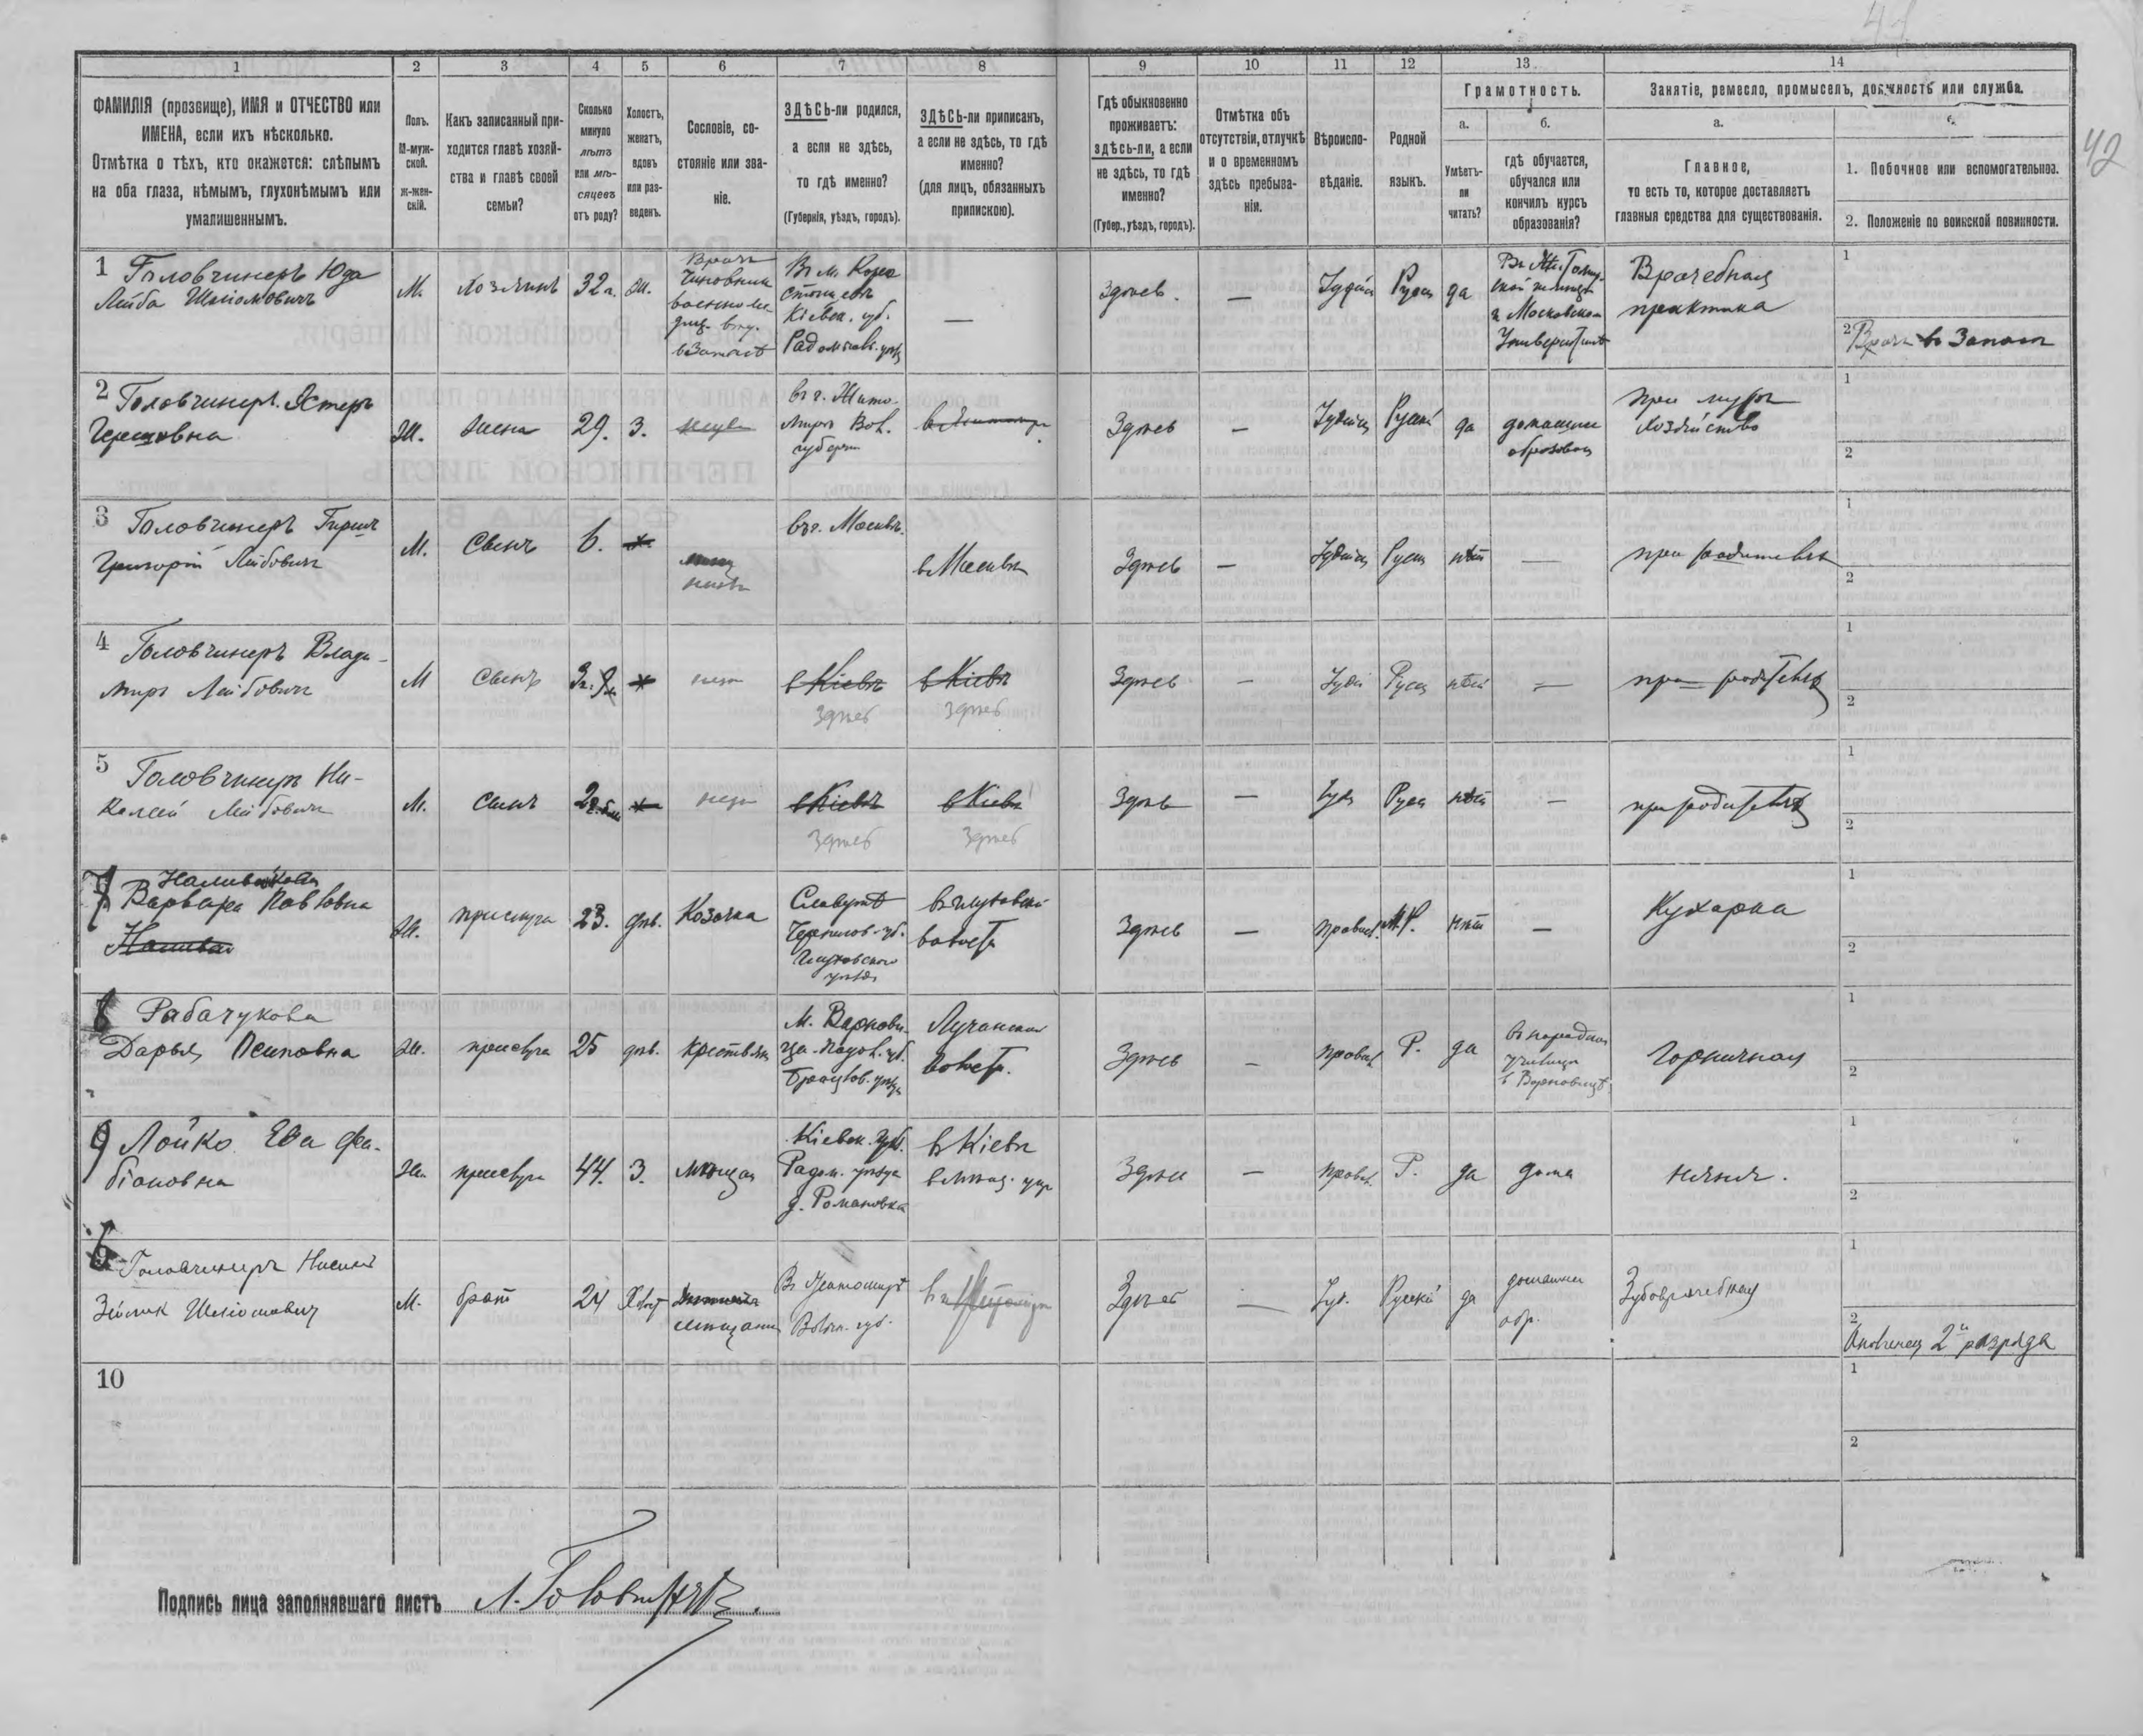 42
1 2 3 4 5 6 7 8 9 10 11 12 13 14
ФАМИЛІЯ (прозвище), ИМЯ и ОТЧЕСТВО или
ИМЕНА, если ихъ нѣсколько.
Отмѣтка о тѣхъ, кто окажется: слѣпымъ
на оба глаза, нѣмымъ, глухонѣмымъ или
умалишеннымъ.
Полъ.
М-муж-
ской.
Ж-жен-
скій.
Какъ записанный при-
ходится главѣ хозяй-
ства и главѣ своей
семьи?
Сколько
минуло
лѣтъ
или мѣ-
сяцевъ
отъ роду?
Холостъ,
женатъ,
вдовъ
или раз-
веденъ.
Сословіе, со-
стояніе или зва-
ніе.
ЗДѢСЬ-ли родился,
а если не здѣсь,
то гдѣ именно?
(Губернія, уѣздъ, городъ).
ЗДѢСЬ-ли приписанъ,
а если не здѣсь, то гдѣ
именно?
(для лицъ, обязанныхъ
припискою).
Гдѣ обыкновенно
проживаетъ:
здѣсь-ли, а если
не здѣсь, то гдѣ
именно?
(Губер., уѣздъ, городъ).
Отмѣтка объ
отсутствіи, отлучкѣ
и о временномъ
здѣсь пребыва-
ніи.
Вѣроиспо-
вѣданіе.
Родной
языкъ.
Грамотность.
а.
Умѣетъ-
ли
читать?
б.
гдѣ обучается,
обучался или
кончилъ курсъ
образованія?
Занятіе, ремесло, промыселъ, должность или служба.
а.
Главное,
то есть то, которое доставляетъ
главныя средства для существованія.
б.
1. Побочное или вспомогательное.
2. Положеніе по воинской повинности.
1 Головчинеръ Юда
Лейба Шліомовичъ
М.
хозяинъ
32
ж.
Врачъ
Чиновник
военно ме-
диц. вѣд.
в Запасѣ
Въ м. Коро
стышевѣ
Кіевск. губ.
Радомысл. уѣзд
—
Здѣсь.
—
Іудейск
Русск
да
Въ Житомир-
ской гимназ
и Московском
Университетѣ
Врачебная
практика
1
2 Врачъ въ Запасѣ
2 Головчинеръ Эстеръ
Ж.
жена
29.
З.
в г. Жито-
мирѣ Вол.
губерн
Здѣсь
—
Іудейск
Русскій
да
домашнее
образован
при мужѣ
Хозяйство
1
2
3 Головчинеръ Гиршъ
Григорій Лейбовичъ
М.
Сынъ
6.
въ г. Москвѣ
в Москвѣ
Здѣсь
—
Іудейск
Русск
нѣтъ
—
при родителяхъ
1
2
4 Головчинеръ Влади-
миръ Лейбовичъ
М
Сынъ
в Кіевѣ
здѣсь
в Кіевѣ
здѣсь
Здѣсь
—
Іудей
Русск
нѣтъ
—
при родителях
1
2
5 Головчинеръ Ни-
колай Лейбовичъ
М.
сынъ
в Кіевѣ
здѣсь
в Кіевѣ
здѣсь
Здѣсь
—
Іуд
Русск
нѣтъ
—
при родителях
1
2
7
Варвара Павловна
Ж.
прислуга
23.
дѣв.
Козачка
Чернигов. губ.
Глуховскаго
уѣзда
волость
Здѣсь
—
правосл.
М.Р.
нѣтъ
—
Кухарка
1
2
8 Рабачукова
Дарья Осиповна
Ж.
прислуга
25
дѣв.
крестьянк
волост.
Здѣсь
—
правосл
Р.
да
в народном
училищѣ
Горничная
1
2
9 Лойко Ева Фа-
біановна
Ж.
прислуга
44.
З.
мѣщан
Кіевск. губ.
Радом. уѣзда
д. Романовка
в Кіевѣ
в мѣщ. упр
Здѣсь
—
правосл.
Р.
да
дома
няня.
1
2
6 Головчинеръ
Шліомович
М.
братъ
24
Холост
мѣщанин
В Житомирѣ
Волын. губ.
Здѣсь
—
Іуд.
Русскій
да
домашнее
обр.
Зубоврачебная
1
2
Ополченец 2й разряда
10
1
2
Подпись лица заполнявшаго листъ Л. Головчинеръ.